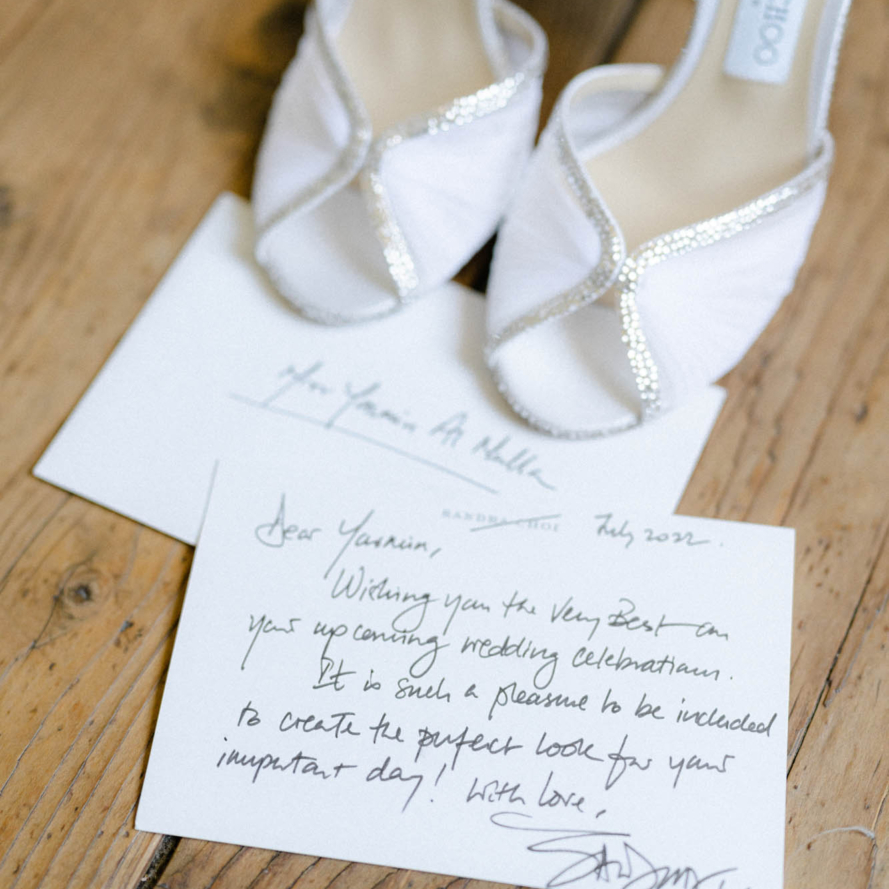 CHOO
Miss Yasmin Al Mulla
SANDRA CHOI
July 2022.
Dear Yasmin,
Wishing you the very Best on
your upcoming wedding celebrations.
It is such a pleasure to be included
to create the perfect look for your
important day! With love,